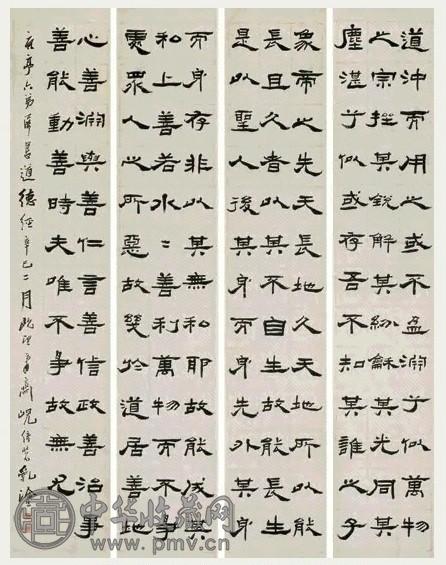 道沖而用之或不盈淵乎似萬物
之宗挫其銳解其紛龢其光同其
塵湛乎似或存吾不知其誰之子
象帝之先天長地久天地所以能
長且久者以其不自生故能長生
是以聖人後其身而身先外其身
而身存非以其無私耶故能成其
私上善若水〻善利萬物而不爭
處眾人之所惡故幾於道居善地
心善淵與善仁言善信政善治事
善能動善時夫唯不爭故無尤
亭六弟屬書道德經辛巳二月
中华收藏网
www.pmv.cn